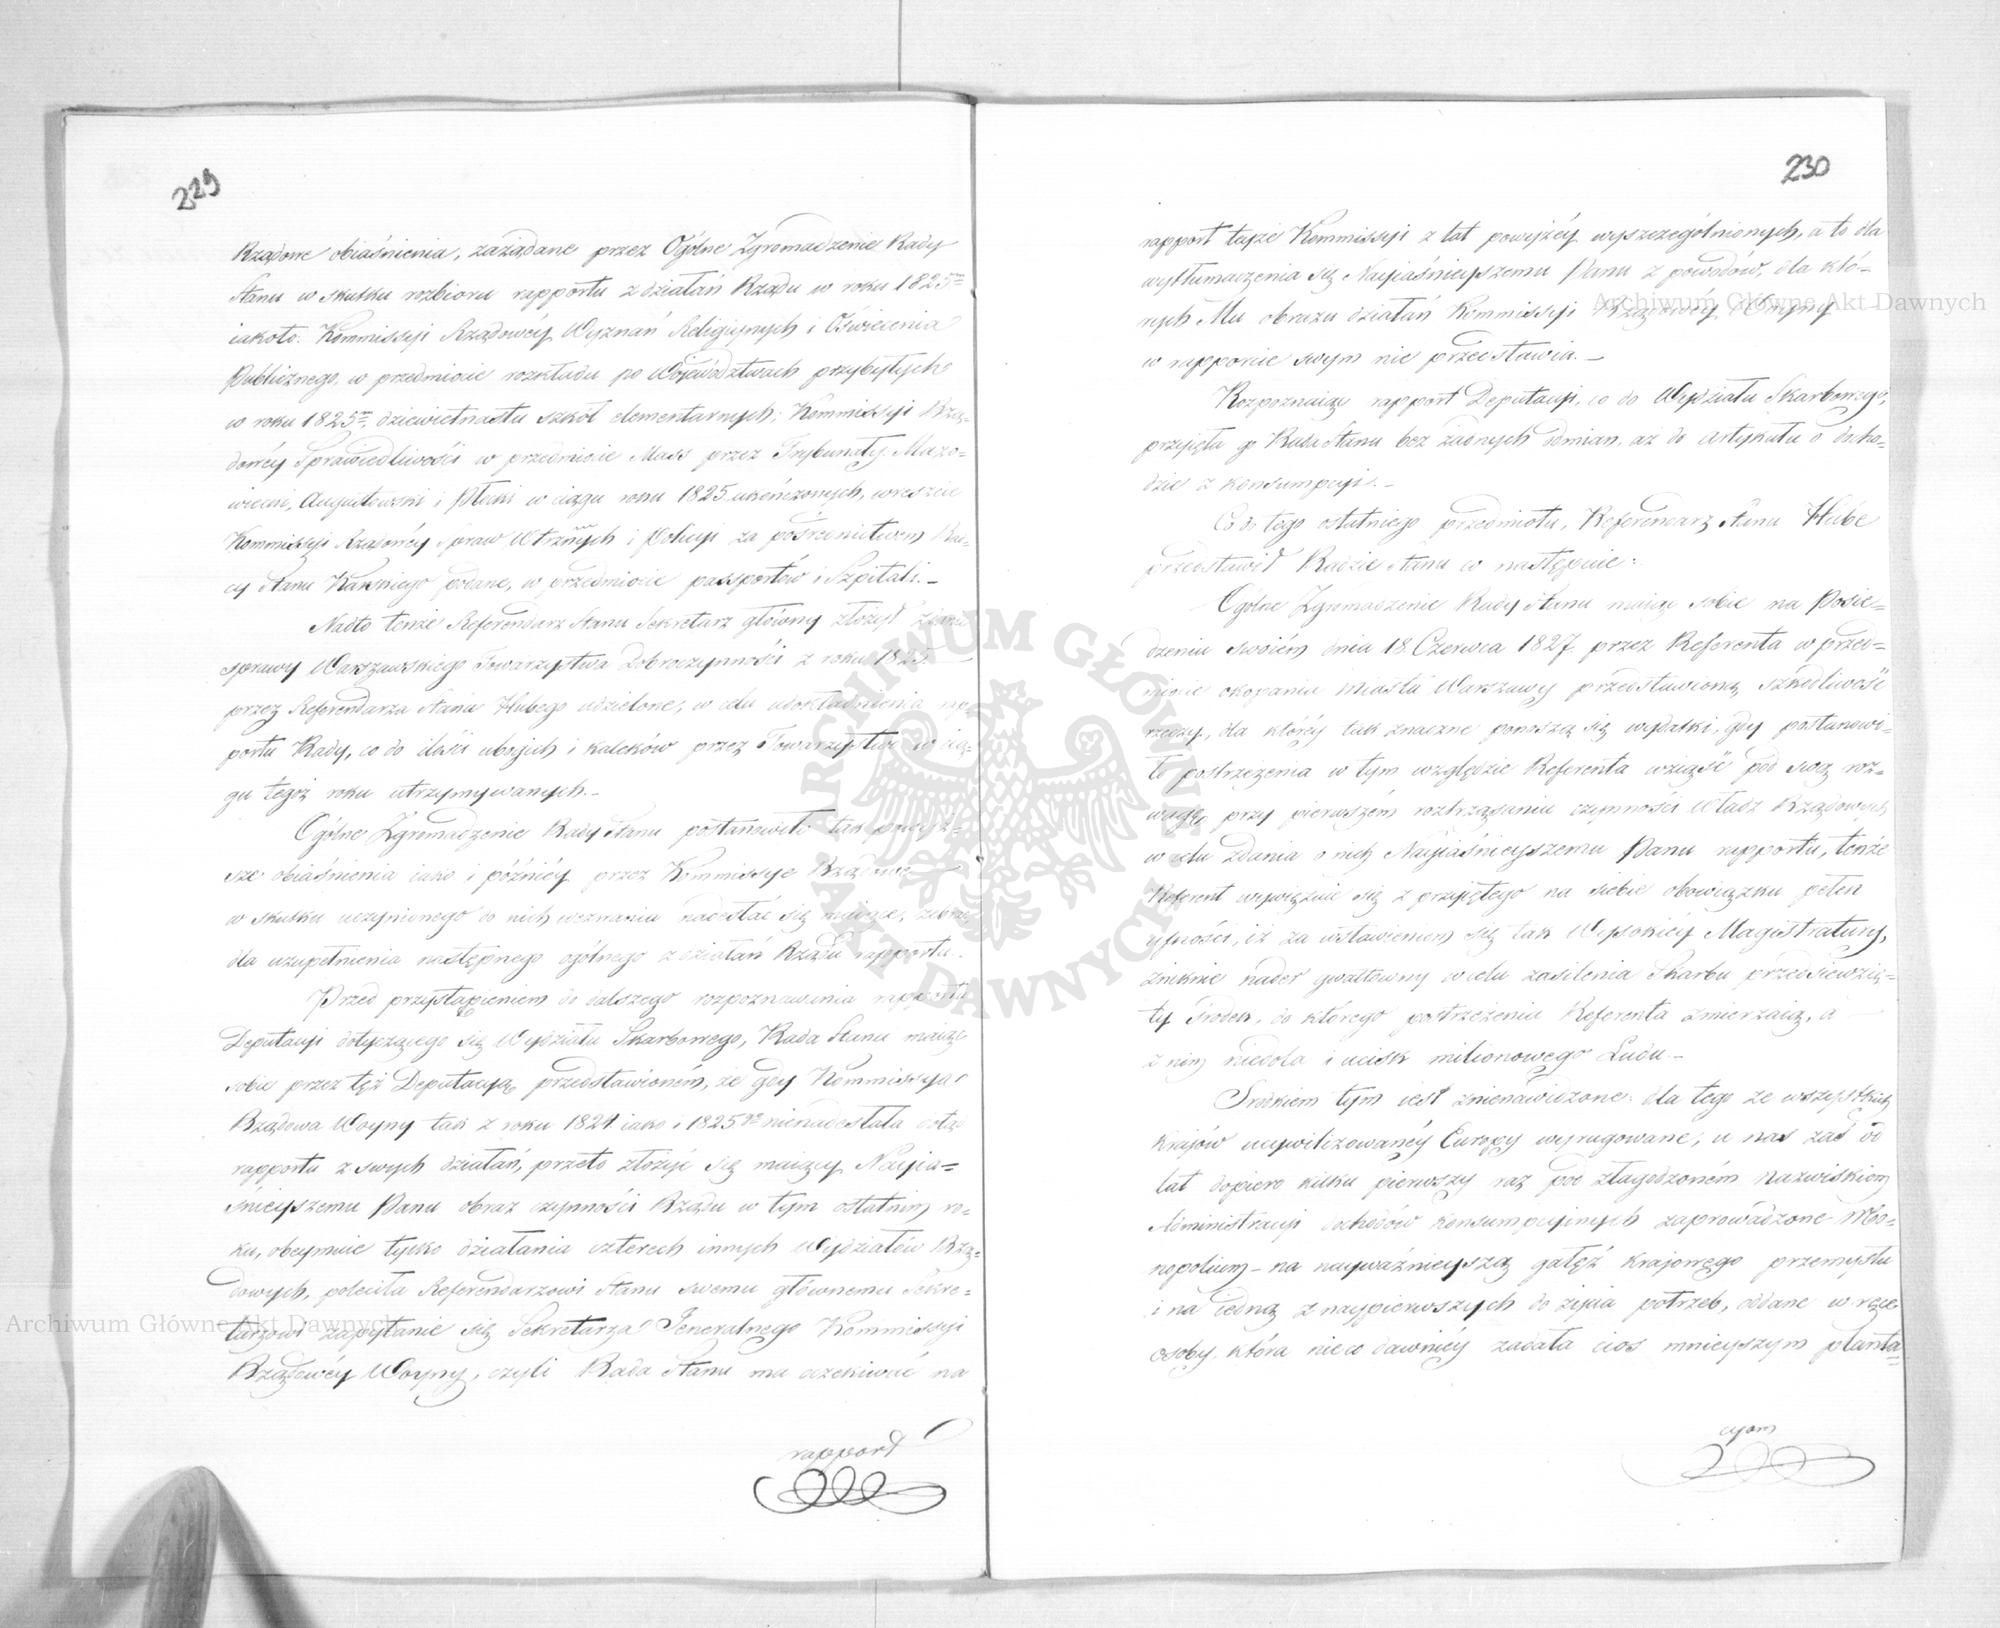 229
Rządowe obiaśnienia, zażądane przez Ogólne Zgromadzenie Rady
Stanu w skutku rozbioru rapportu z działań Rządu w roku 1825
iakoto: Kommissyi Rządowéy Wyznań Religiynych i Oświecenia
Publicznego, w przedmiocie rozkładu po Województwach przybyłych
w roku 1825 dziewiętnastu szkół elementarnych; Kommissyi Rzą-
dowéy Sprawiedliwości w przedmiocie Mass przez Trybunały: Mazo-
wiecki, Augustowski i Płocki w ciągu roku 1825 ukończonych, wreszcie
Kommissyi Rządowéy Spraw Wtrznych i Policyi za pośrednictwem Rad-
cy Stanu Karskiego podane, w przedmiocie passportów i Szpitali.–
Nadto tenże Referendarz Stanu Sekretarz główny złożył zdanie
sprawy Warszawskiego Towarzystwa Dobroczynności z roku 1825
przez Referendarza Stanu Hubego udzielone, w celu udokładnienia rap-
portu Rady, co do ilości ubogich i kaleków przez Towarzystwo w cią-
gu tegoż roku utrzymywanych.–
Ogólne Zgromadzenie Rady Stanu postanowiło tak powyż-
sze obiaśnienia iako i późniéy przez Kommissye Rządowe
w skutku uczynionego do nich wezwania nadesłać się maiące, zebrać
dla uzupełnienia następnego ogólnego z działań Rządu rapportu.
Przed przystąpieniem do dalszego rozpoznawania rapportu
Deputacyi dotyczącego się Wydziału Skarbowego, Rada Stanu maiąc
sobie przez też Deputacyą przedstawioném, że gdy Kommissya
Rządowa Woyny tak z roku 1824 iako i 1825go nienadesłała dotąd
rapportu z swych działań, przeto złożyć się maiący Nayia-
śnieyszemu Panu obraz czynności Rządu w tym ostatnim ro-
ku, obeymie tylko działania czterech innych Wydziałów Rzą-
dowych, poleciła Referendarzowi Stanu swemu głównemu Sekre-
tarzowi zapytanie się Sekretarza Jeneralnego Kommissyi
Rządowéy Woyny, czyli Rada Stanu ma oczekiwać na
rapport
230
rapport teyże Kommissyi z lat powyżéy wyszczególnionych, a to dla
wytłumaczenia się Nayiaśnieyszemu Panu z powodów, dla któ-
rych Mu obrazu działań Kommissyi Rządowéy Woyny
w rapporcie swym nie przedstawia.–
Rozpoznaiąc rapport Deputacyi, co do Wydziału Skarbowego,
przyięła go Rada Stanu bez żadnych odmian, aż do artykułu o docho-
dzie z konsumpcyi.–
Co do tego ostatniego przedmiotu, Referendarz Stanu Hube
przedstawił Radzie Stanu co następuie:
Ogólne Zgromadzenie Rady Stanu maiąc sobie na Posie-
dzeniu swoiém dnia 18. Czerwca 1827 przez Referenta w przed-
miocie okopania miasta Warszawy przedstawioną szkodliwość
rzeczy, dla któréy tak znaczne ponoszą się wydatki, gdy postanowi-
ło postrzeżenia w tym względzie Referenta wziąść pod swą roz-
wagę przy pierwszém roztrząsaniu czynności Władz Rządowych
w celu zdania o nich Nayiaśnieyszemu Panu rapportu, tenże
Referent wywiązuie się z przyiętego na siebie obowiązku pełen
ufności, iż za wstawieniem się tak Wysokiéy Magistratury,
zniknie nader gwałtowny w celu zasilenia Skarbu przedsięwzię-
ty środek, do którego postrzeżenia Referenta zmierzaią, a
z nim niedola i ucisk milionowego Ludu.–
Środkiem tym iest znienawidzone: dla tego ze wszystkich
krajów ucywilizowanéy Europy wyrugowane; u nas zaś od
lat dopiero kilku pierwszy raz pod złagodzoném nazwiskiem
Administracyi dochodów konsumpcyinych zaprowadzone Mo-
nopolium – na nayważnieyszą gałęź krajowego przemysłu
i na iedną z naypierwszych do życia potrzeb, oddane w ręce
osoby, która nieco dawniéy zadała cios mnieyszym planta-
cyom
Archiwum Główne Akt Dawnych
Archiwum Główne Akt Dawnych
ARCHIWUM GŁÓWNE AKT DAWNYCH